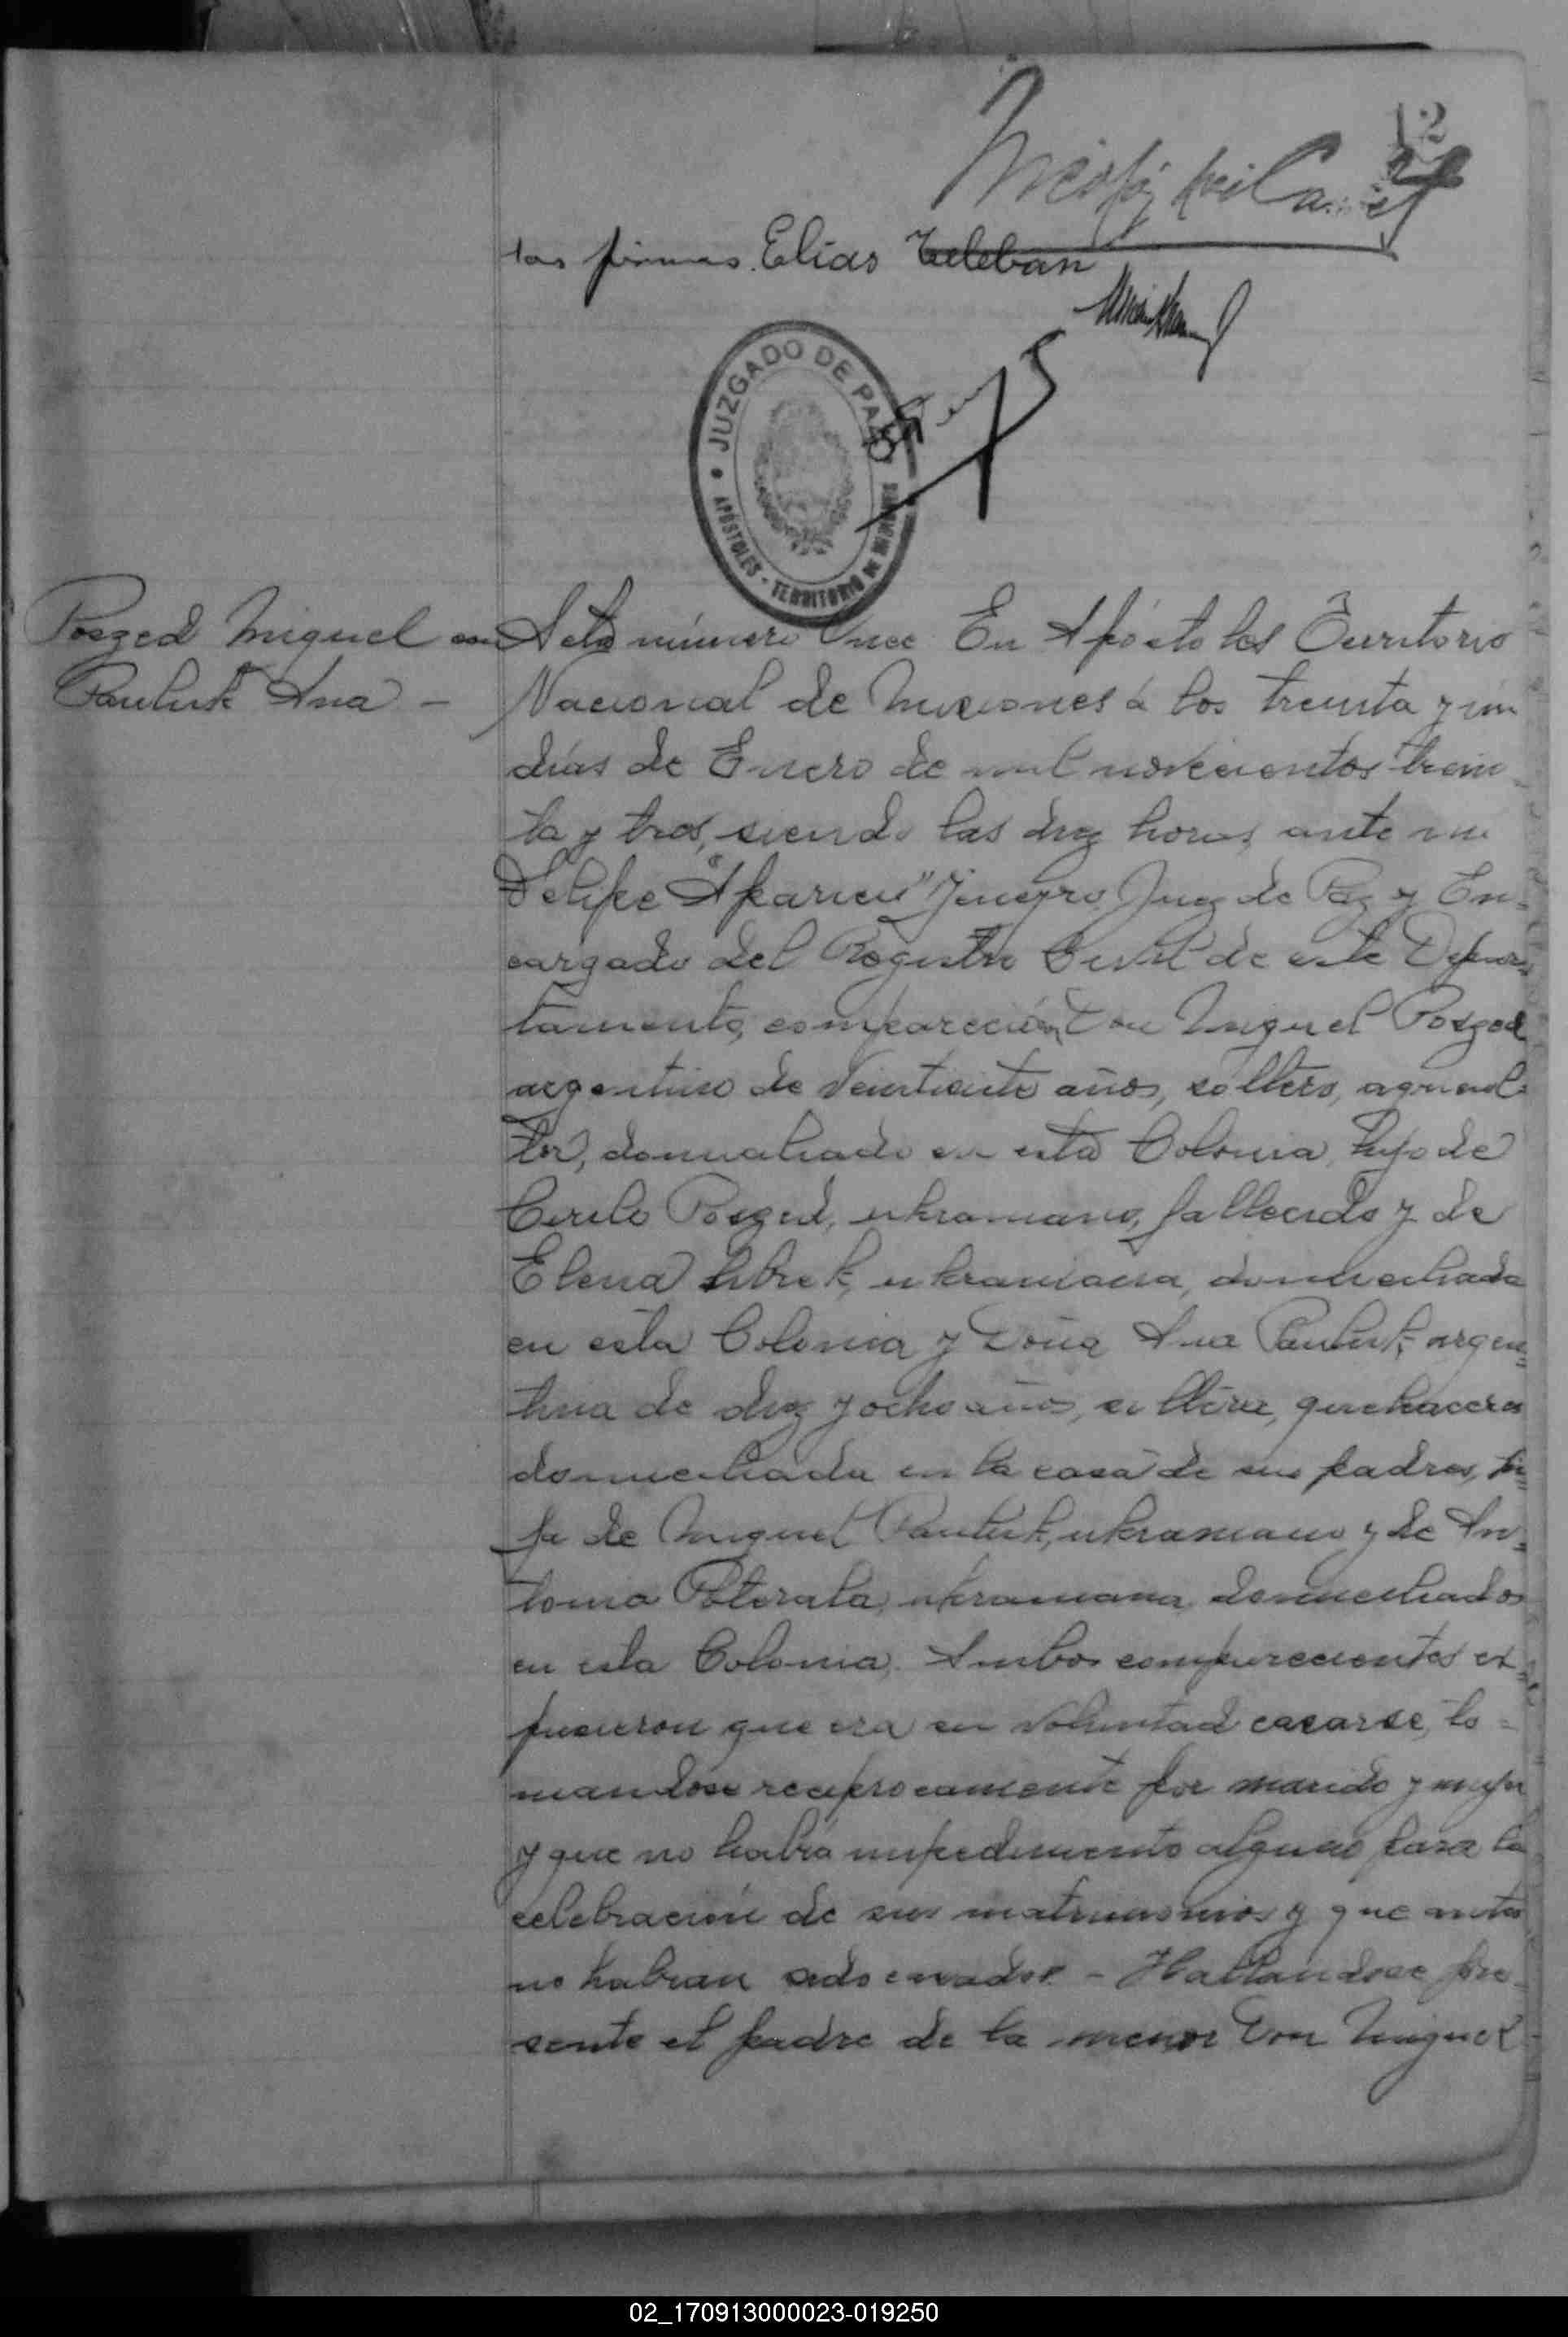 12
las firmas. Elias Teleban
JUZGADO DE PAZ
APÓSTOLES - TERRITORIO DE MISIONES
Poszed Miguel con
Pauluk Ana -
Acta número Once En Apóstoles Territorio
Nacional de Misiones á los treinta y un
días de Enero de mil novecientos trein-
ta y tres, siendo las diez horas, ante mi
Felipe "Aparicio" Juez de Paz y En-
cargado del Registro Civil de este Depar-
tamento, comparecieron Don Miguel Poszed
argentino de veintisiete años, soltero, agricul-
tor, domiciliado en esta Colonia, hijo de
Cirilo Poszed, ukraniano, fallecido y de
Elena ukraniana, domiciliada
en esta Colonia y Doña Ana Pauluk, argen-
tina de diez y ocho años, soltera, quehaceres
domiciliada en la casa de sus padres, hi-
ja de Miguel Pauluk, ukraniano y de An-
tonia Poterala, ukraniana, domiciliados
en esta Colonia. Ambos comparecientes ex-
pusieron que era su voluntad casarse, to-
mandose reciprocamente por marido y mujer
y que no habia impedimento alguno para la
celebración de sus matrimonios y que antes
no habian sido casados. - Hallandose pre-
sente el padre de la menor Don Miguel
02_170913000023-019250